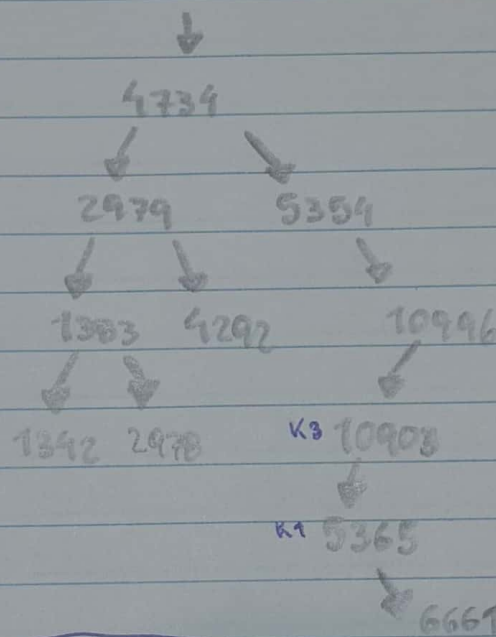 4734
2979 5354
1383 4292 10996
1342 2978 K3 10903
K1 5365
6661